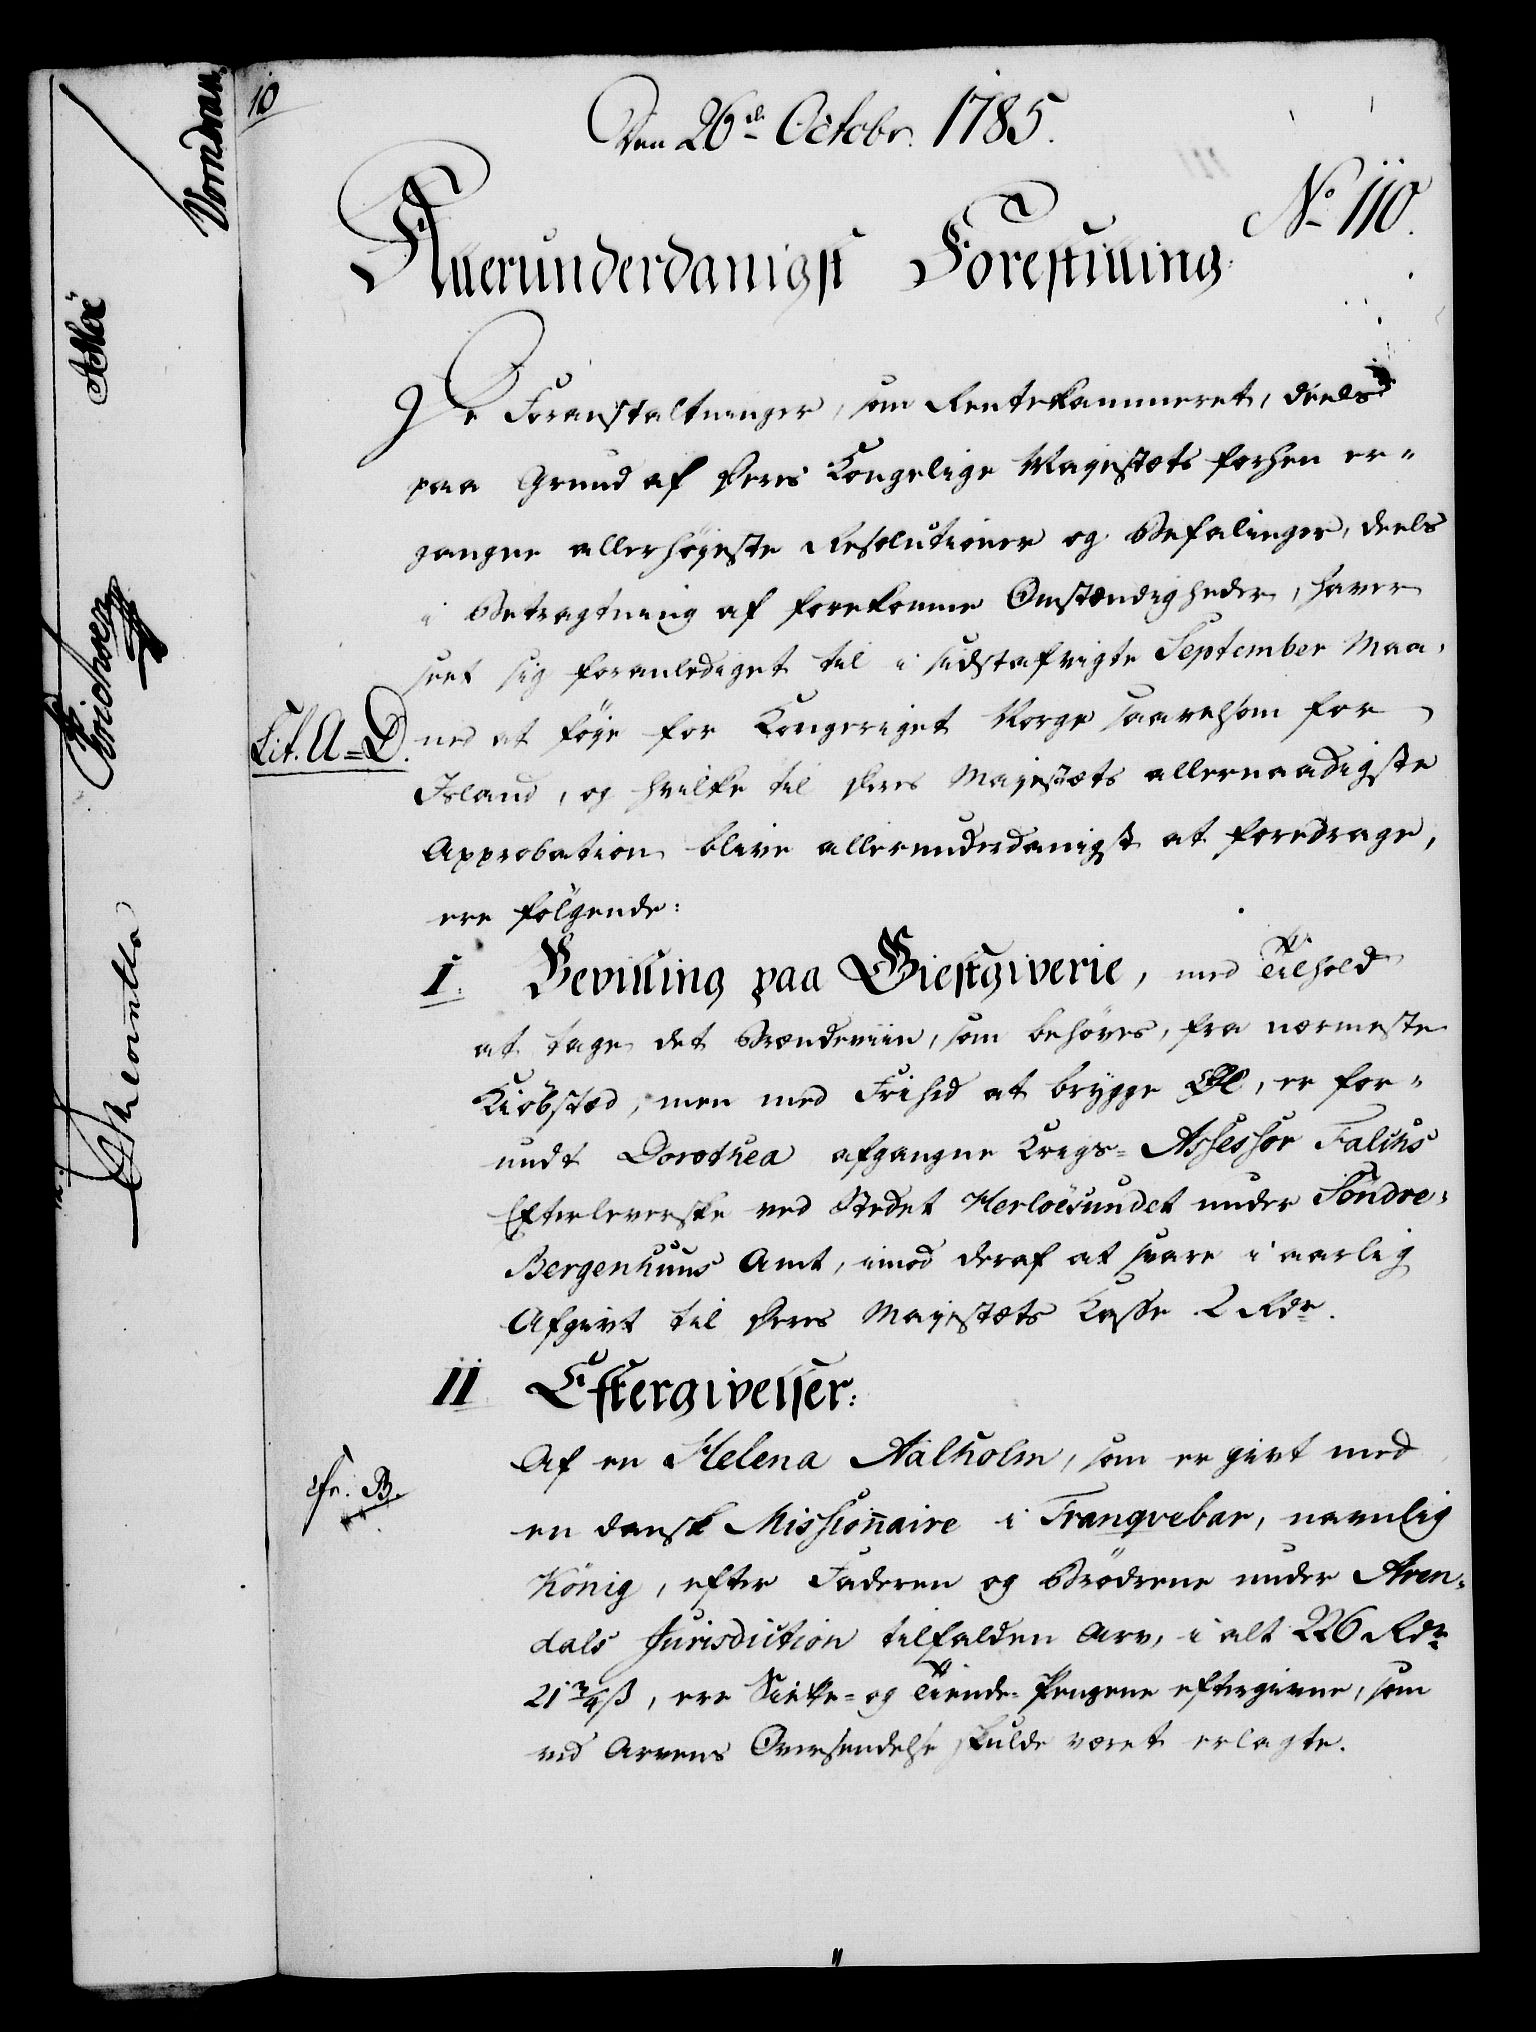 10
Den 26de Octobr. 1785.
No 110.
Allerunderdanigst Forestilling.
De Foranstaltninger, som Rentekammeret, deels
paa Grund af Deres Kongelige Majestæts forhen er-
gangne allerhøjeste Resolutioner og Befalinger, deels
i Betragtning af forekomne Omstændigheder, haver
seet sig foranlediget til i sidstafvigte September Maa-
ned at føje for Kongeriget Norge saavelsom for
Lit. A=D.
Island, og hvilke til Deres Majestæts allernaadigste
Approbation blive allerunderdanigst at foredrage,
ere følgende:
I. Bevilling paa Giestgiverie, med Tilhold
at tage det Brændeviin, som behøves, fra nærmeste
Kiøbstæd, men med Frihed at brygge Øl, er for-
undt Dorothea afgangne Krigs= Assessor Falchs
Efterleverske ved Stedet Herløesundet under Söndre-
Bergenhuus Amt, imod deraf at svare i aarlig
Afgivt til Deres Majestæts Kasse 2 Rdr.
II Eftergivelser:
Af en Helena Aalholm, som er givt med
cfr. B.
en dansk Missionnaire i Tranqvebar, navnlig
König, efter Faderen og Brødrene under Aren-
dals Jurisdiction tilfalden Arv, i alt 226 Rdr
21 3/4 ß, ere Siette= og Tiende= Pengene eftergivne, som
ved Arvens Oversendelse skulde været erlagte.